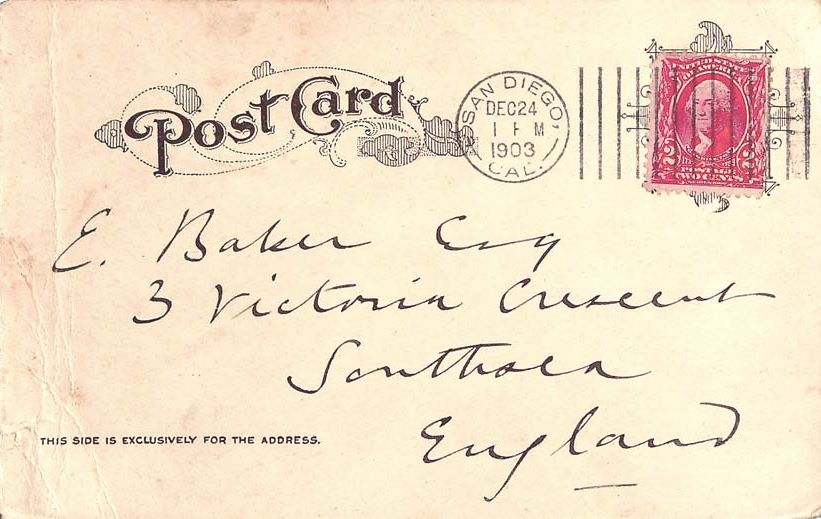 Post Card
SAN DIEGO,
DEC 24
1903
CAL.
UNITED STATES
OF AMERICA
2 2
POSTAGE
TWO CENTS
E. Baker Esq
3 Victoria Crescent
Southsea
England
THIS SIDE IS EXCLUSIVELY FOR THE ADDRESS.